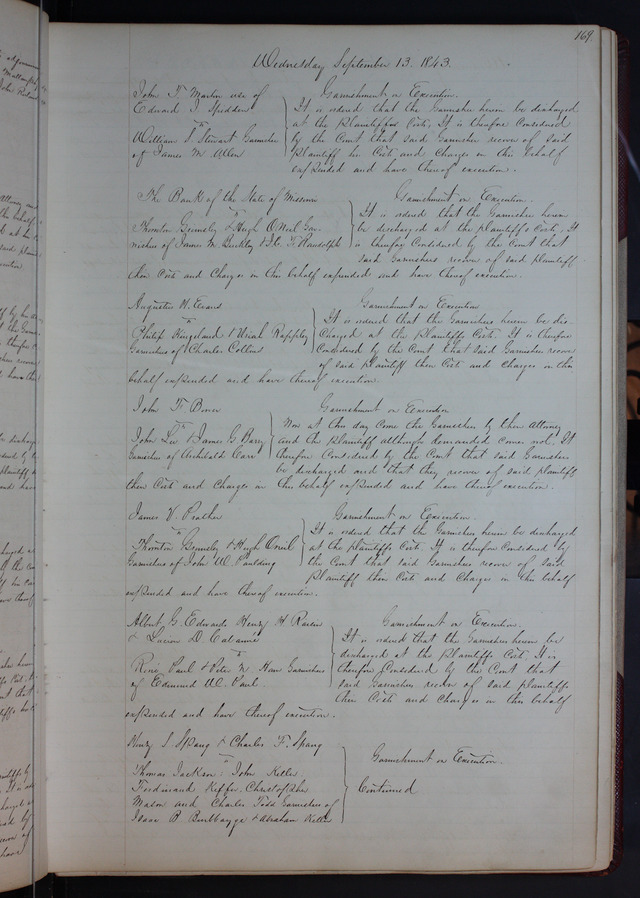 169.
Wednesday September 13. 1843.
John F. Martin use of Garnishment on Execution.
Edward J. Spedden It is ordered that the Garnishee herein be discharged
vs at the Plaintiffs Costs, It is therefore Considered
William S. Stewart Garnishee by the Court that said Garnishee recover of said
of James M. Allen Plaintiff his Costs and Charges in this behalf
expended and have thereof execution.
The Bank of the State of Missouri Garnishment on Execution.
vs It is ordered that the Garnishees herein
Thornton Grimsley & Hugh O'Neil Gar- be discharged at the plaintiffs Costs, It
nishees of James M. & Randolph is therefore Considered by the Court that
said Garnishees recover of said plaintiff
their Costs and Charges in this behalf expended and have thereof execution.
Augustus H. Evans Garnishment on Execution
vs It is ordered that the Garnishees herein be dis-
Philip Kingsland & Uriah Rappley charged at the plaintiffs Costs. It is therefore
Garnishees of Charles Collins Considered by the Court that said Garnishees recover
of said plaintiff their Costs and charges in this
behalf expended and have thereof execution.
John F. Garnishment on Execution
vs Now at this day come the Garnishees by their Attorney
John Lee & James G. Barry and the plaintiff although demanded comes not. It
Garnishees of Archibald Carr therefore Considered by the Court that said Garnishees
be discharged and that they recover of said plaintiff
their Costs and Charges in this behalf expended and have thereof execution.
James V. Prather Garnishment on Execution.
vs It is ordered that the Garnishees herein be discharged
Thornton Grimsley & Hugh Oneil at the plaintiffs Costs It is therefore Considered by
Garnishees of John W. Paulding the Court that said Garnishees recover of said
Plaintiff their Costs and Charges in this behalf
expended and have thereof execution.
Albert G. Edwards Henry H. Garnishment on Execution.
& Lucien D. Cabanne It is ordered that the Garnishees herein be
vs discharged at the Plaintiffs Costs, It is
René Paul & Peter N. Garnishees therefore Considered by the Court that
of Edmund W. Paul. said Garnishees recover of said plaintiffs
their Costs and Charges in this behalf
expended and have thereof execution.
Henry S. Spang & Charles F. Spang
vs Garnishment on Execution.
Thomas Jackson John Keller
Ferdinand Christopher Continued
Mason and Charles Todd Garnishees of
Isaac B. Burbbayge & Abraham Keller